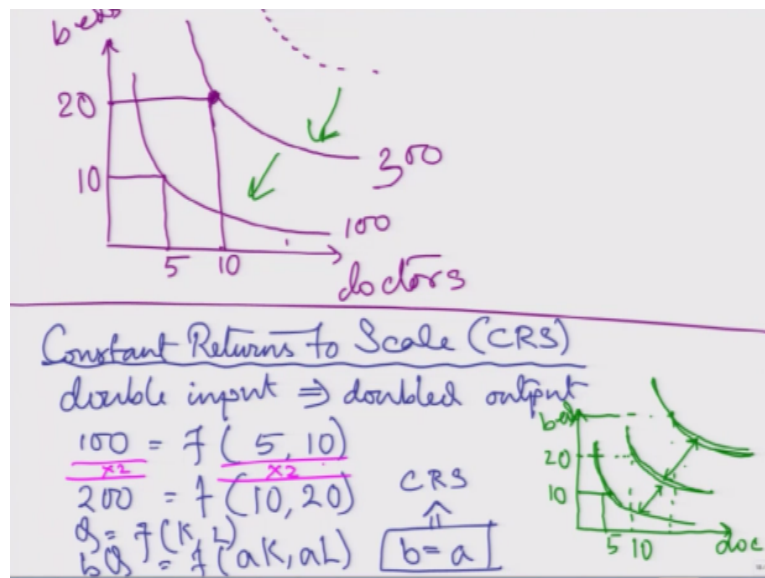 20
300
10
100
5 10
doctors
Constant Returns to Scale (CRS)
double input ⇒ doubled output
100 = f (5, 10)
×2 ×2
200 = f (10, 20)
Q = f(K, L)
bQ = f(aK, aL)
CRS
⇑
b = a
20
10
5 10 doc